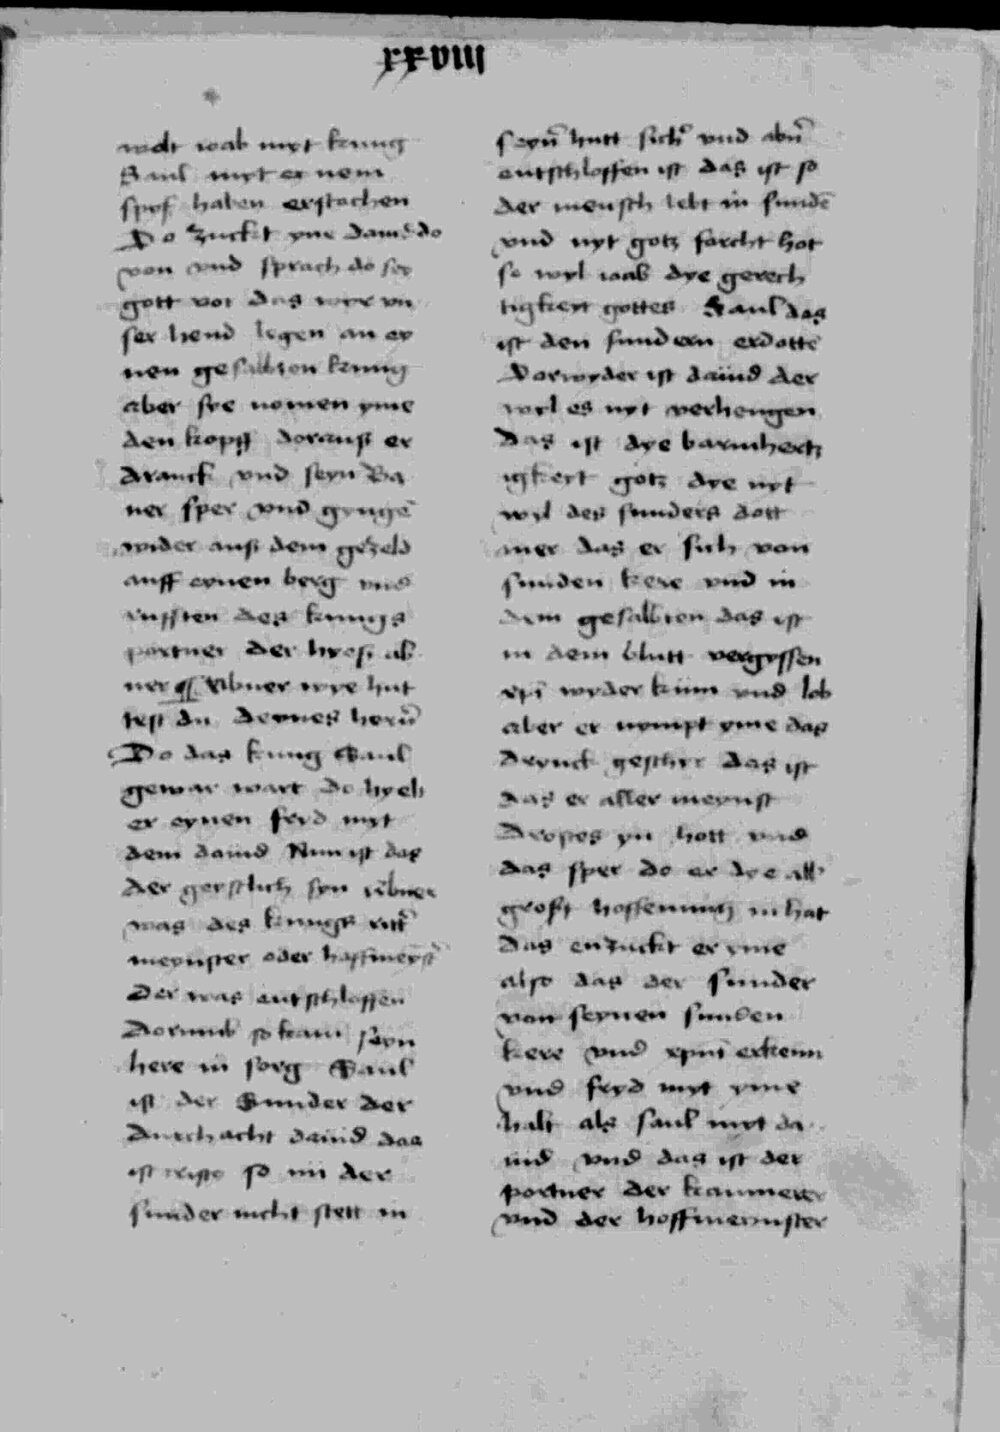 xxviii
wolt wab myt kunig
Saul myt er nem
spys haben erstochen
Do zuckt yne dauid do
von vnd sprach do sey
gott vor das wyr vn
ser hend legen an ey
nen gesalbten kunig
aber sye nomen yme
den kopff dorauß er
dranck vnd seyn Ba
ner sper vnd gyngē
wider auß dem gezeld
auff eynen berg vnd
rufften des kunigs
portner der hyesz ab
ner ¶ Abner wye hut
test du deynes herñ
Do das kunig Saul
gewar wart do hyelt
er eynen fryd myt
dem dauid Nun ist das
der geystlich syn Abner
was des kunigs ritt
meynster oder hoffmeynst
der was entschlossen
dorumb so kam seyn
here in sorg Saul
ist der Sunder der
durchacht dauid das
ist cristo so nu der
sunder nicht stett in
seyn̄ hutt sich̄ vnd abn̄
entschlossen ist das ist so
der mensch lebt in sundē
vnd nyt gotz forcht hot
so wyl wab dye gerech
tigkeyt gottes Saul das
ist den sundern erdottē
Dorwyder ist dauid der
wyl es nyt verhengen
das ist dye barmhertz
igkeyt gotz dye nyt
wyl des sunders dott
mer das er sich von
sunden kere vnd in
dem gesalbten das ist
in dem blutt vergyssen
xpi wyder kum vnd leb
aber er nympt yme das
drynck geschyr das ist
das er aller meynst
drostes yn hott vnd
das sper do er dye all
grost hoffenung in hat
das enzuckt er yme
also das der sunder
von seynen sunden
kere vnd xpm erkenn
vnd fryd myt yme
halt als saul myt da
uid vnd das ist der
portner der kammerer
vnd der hoffmeynster